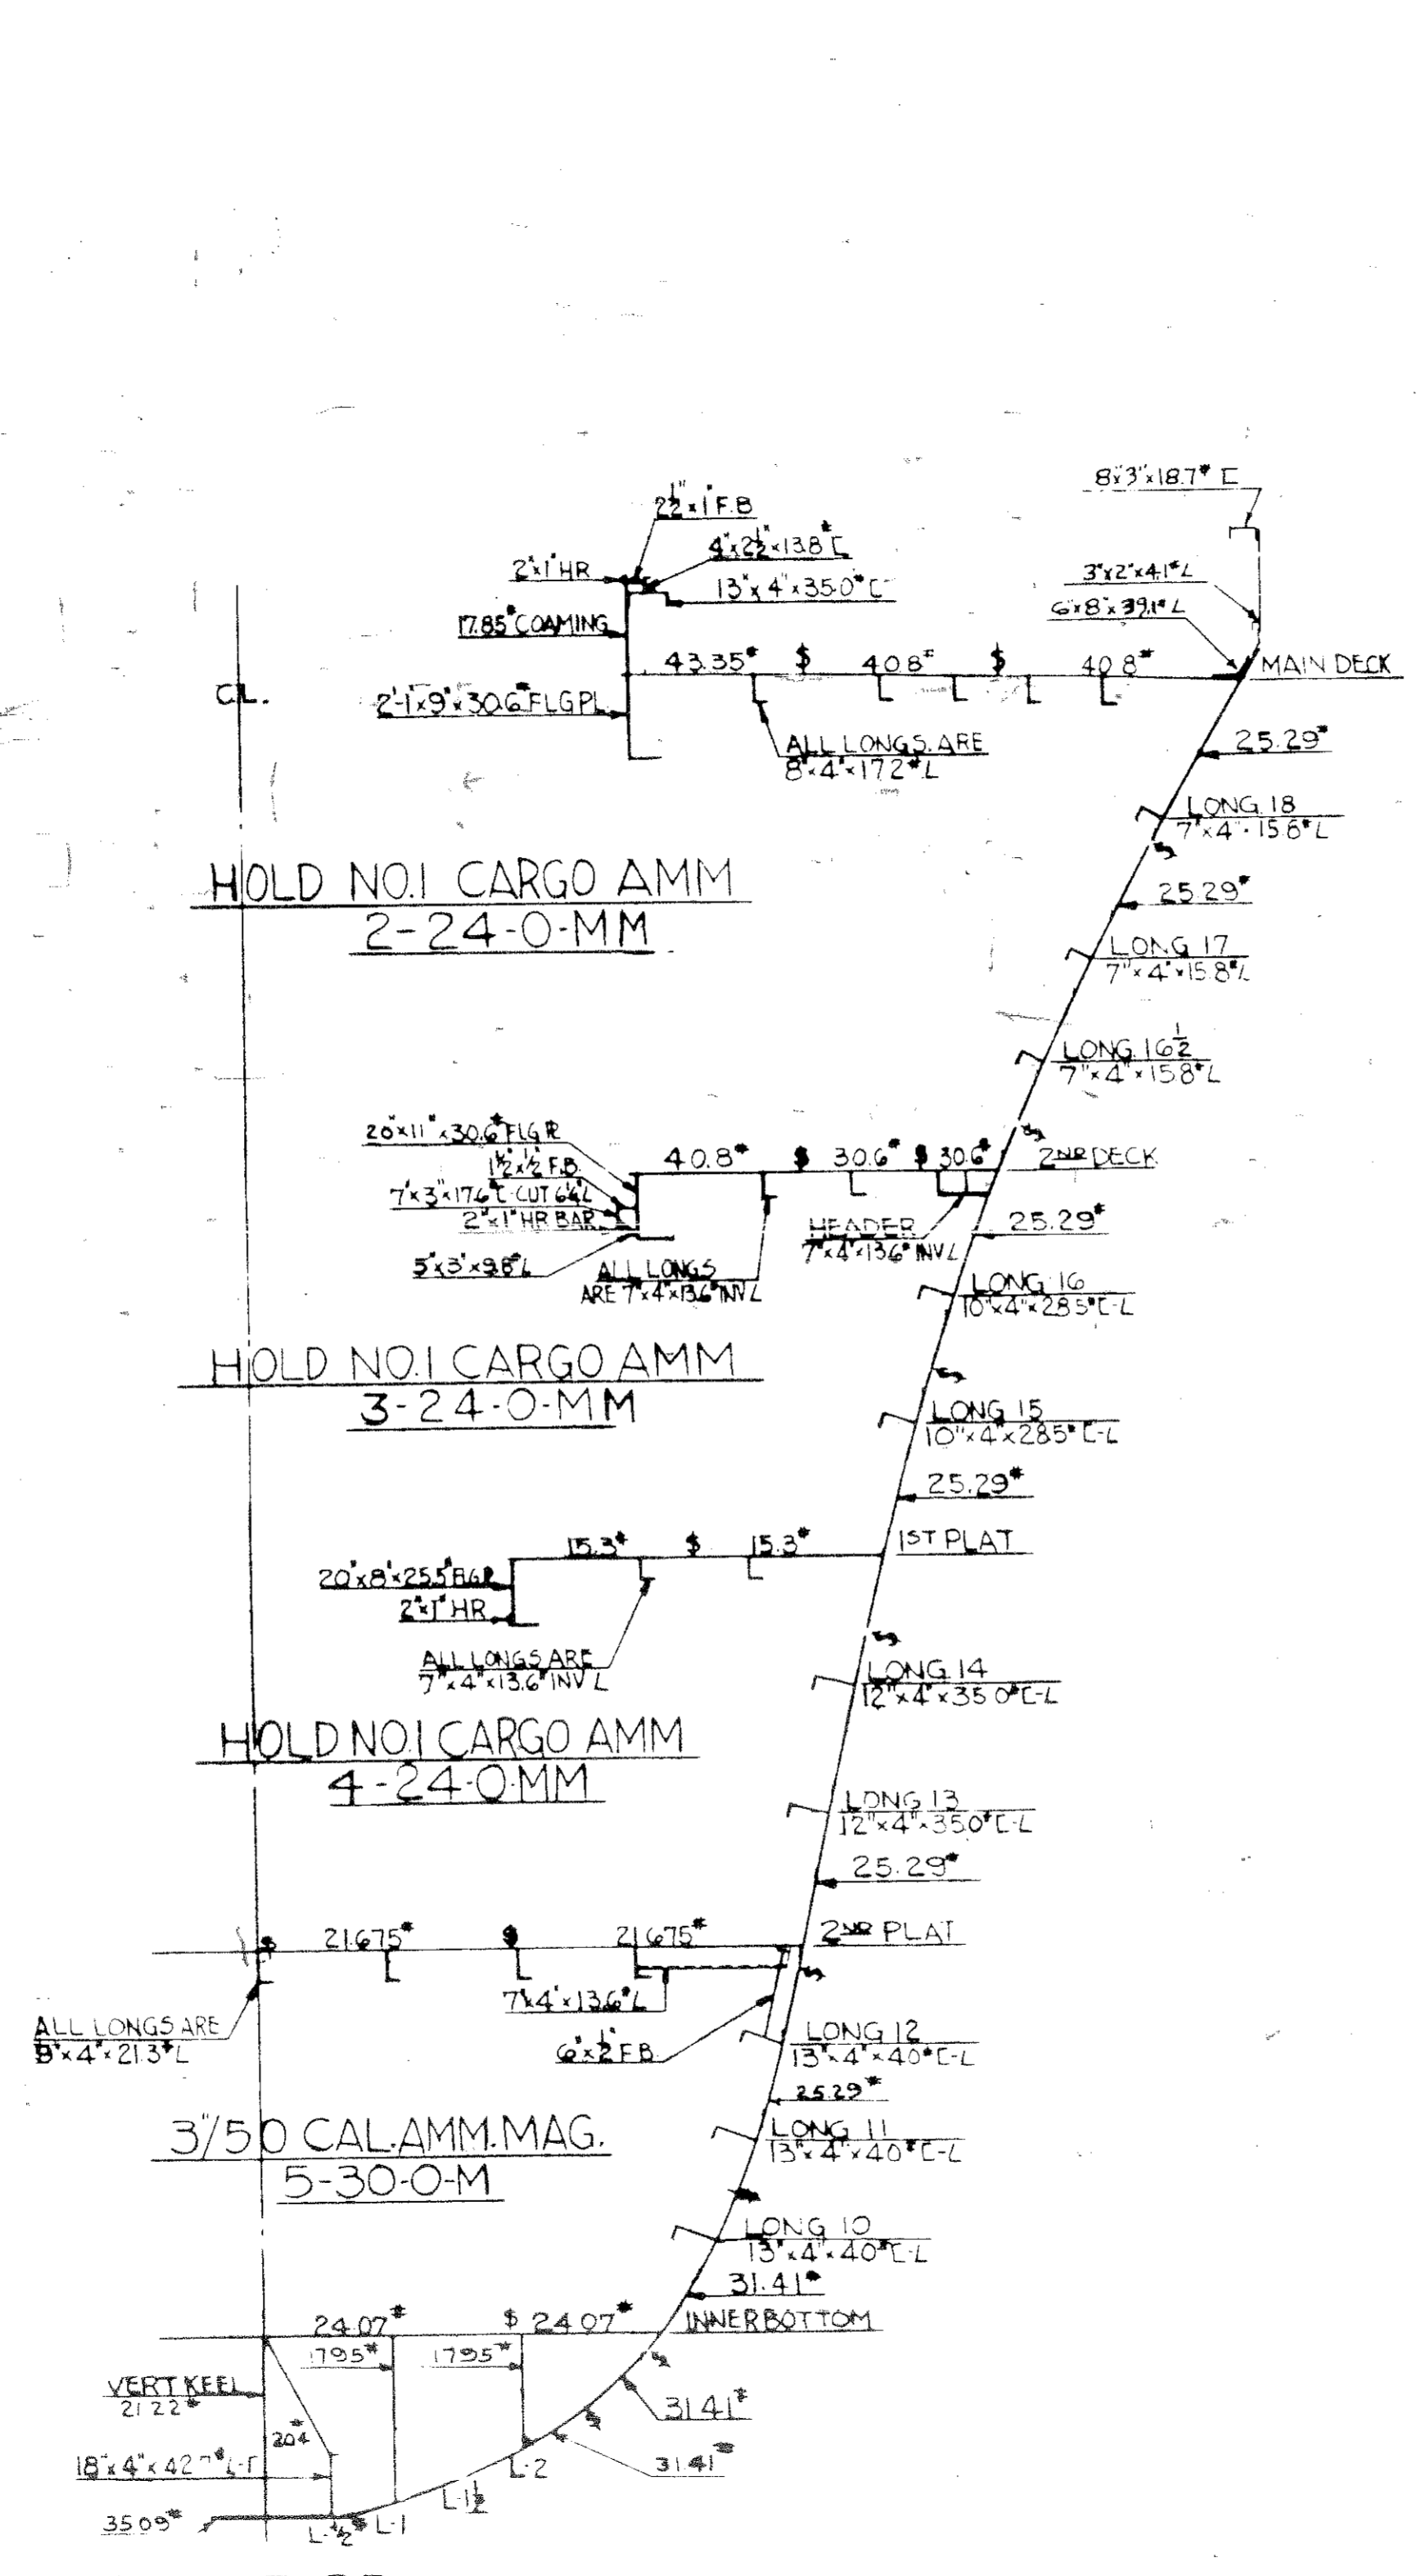 8"x3"x18.7# [
2½"x1" F.B
4"x2½"x13.8# [
2"x1" HR
13"x4"x35.0# [
3"x2"x4.1# L
6"x8"x39.1# L
17.85# COAMING
43.35# $ 40.8# $ 40.8#
MAIN DECK
CL.
2'-1"x9"x30.6# FLG PL
ALL LONGS. ARE
8"x4"x17.2# L
25.29#
LONG. 18
7"x4"x15.8# L
HOLD NO.1 CARGO AMM
2-24-0-MM
25.29#
LONG. 17
7"x4"x15.8# L
LONG. 16½
7"x4"x15.8# L
20"x11"x30.6# FLG PL
40.8# $ 30.6# $ 30.6#
2ND DECK
1½"x½" F.B.
7"x3"x17.6# [ CUT L
2"x1" HR BAR
HEADER
7"x4"x13.6# INV L
25.29#
5"x3"x9.8# L
ALL LONGS
ARE 7"x4"x13.6# INV L
LONG. 16
10"x4"x28.5# [-L
HOLD NO.1 CARGO AMM
3-24-0-MM
LONG 15
10"x4"x28.5# [-L
25.29#
15.3# $ 15.3#
1ST PLAT
20"x8"x25.5# FLG PL
2"x1" HR
ALL LONGS ARE
7"x4"x13.6# INV L
LONG. 14
12"x4"x35.0# [-L
HOLD NO.1 CARGO AMM
4-24-0-MM
LONG 13
12"x4"x35.0# [-L
25.29#
$ 21.675# $ 21.675#
2ND PLAT
7"x4"x13.6# L
ALL LONGS ARE
x4"x21.3# L
6"x½" F.B.
LONG 12
13"x4"x40# [-L
25.29#
3"/50 CAL. AMM. MAG.
5-30-0-M
LONG 11
13"x4"x40# [-L
LONG 10
13"x4"x40# [-L
31.41#
24.07# $ 24.07#
INNERBOTTOM
17.95# 17.95#
VERT KEEL
21.22#
31.41#
20.4#
18"x4"x42.7#
31.41#
L-2
L-1½
35.09#
L-½ $ L-1